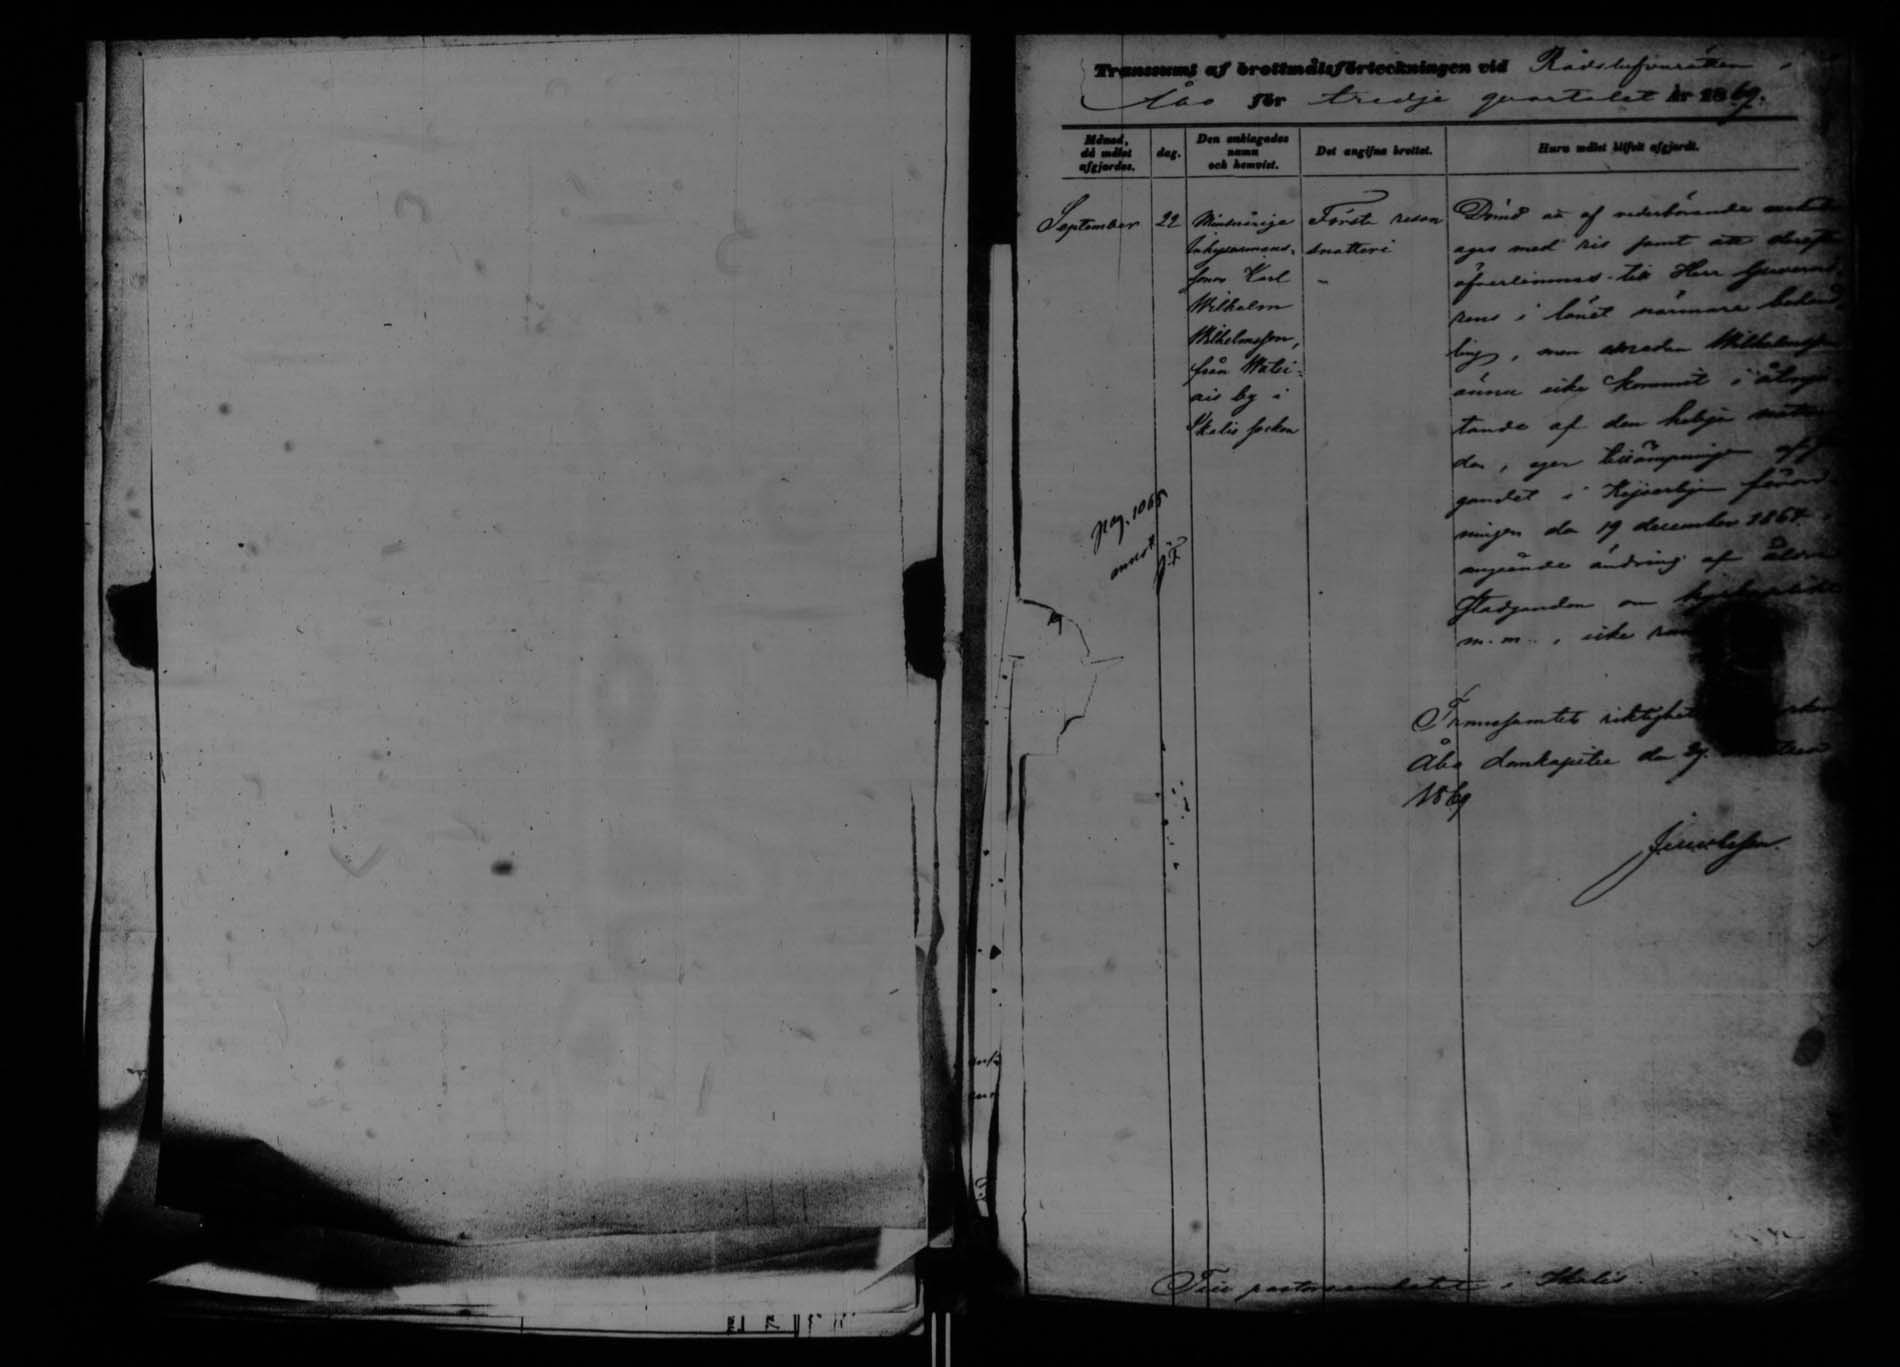 Transsumt af brottmålsförteckningen vid Rådstufvurätten i
Åbo för tredje quartalet år 1869.
Månad, då målet afgjordes.
dag.
Den anklagades namn och hemvist.
Det angifna brottet.
Huru målet blifvit afgjordt.
September
22
Minderårige
Inhysesmans-
sonen Karl
Wilhelm
Wilhelmsson,
från
ais by i
Skalis socken
Första resan
snatteri
Dömd att af vederbörande
agas med ris samt att derefter
öfverlemnas till Herr Guvernö-
rens i länet närmare behand-
ling, men emedan Wilhelmsson
ännu icke kommit i åtnju-
tande af den heliga nattvar-
den, eger tillämpningen af
gandet i Kejserliga förord-
ningen den 19 december 1864
angående ändring af äldre
stadganden om
m. m., icke rum
pag. 1065
annot
J. F.
Transsumtets riktighet
Åbo domkapitel den 29
1869
Till pastorsembetet i Skalis.